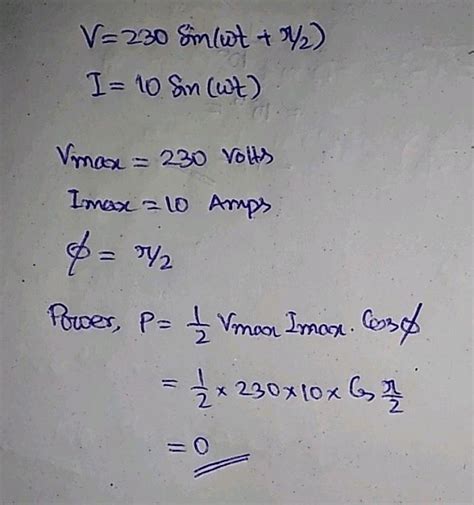 V = 230 Sin(ωt + π/2)
I = 10 Sin(ωt)
Vmax = 230 Volts
Imax = 10 Amps
φ = π/2
Power, P = 1/2 Vmax Imax. Cosφ
= 1/2 × 230 × 10 × Cos π/2
= 0